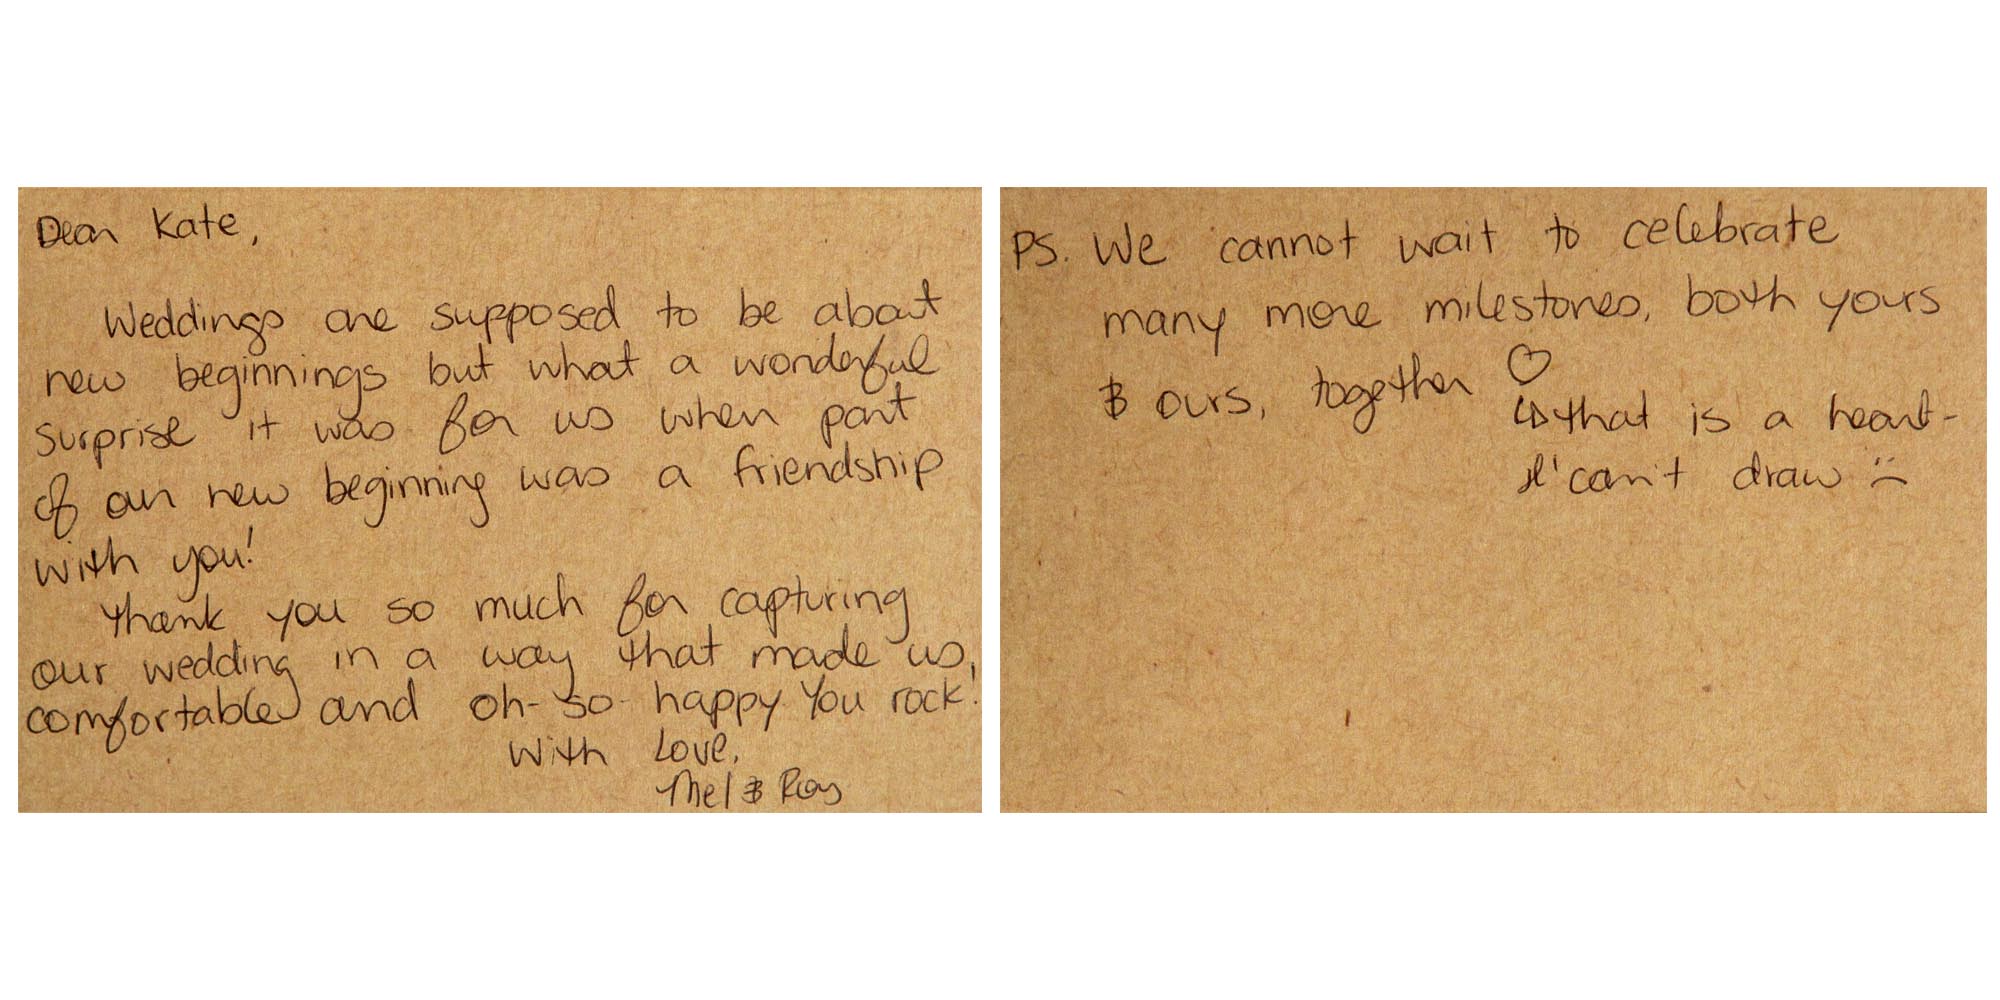 Dear Kate,
Weddings are supposed to be about
new beginnings but what a wonderful
surprise it was for us when part
of our new beginning was a friendship
with you!
Thank you so much for capturing
our wedding in a way that made us,
comfortable and oh-so-happy. You rock!
With Love,
Mel & Roy
PS. We cannot wait to celebrate
many more milestones, both yours
& ours, together ♡
↳ that is a heart-
I can't draw :(